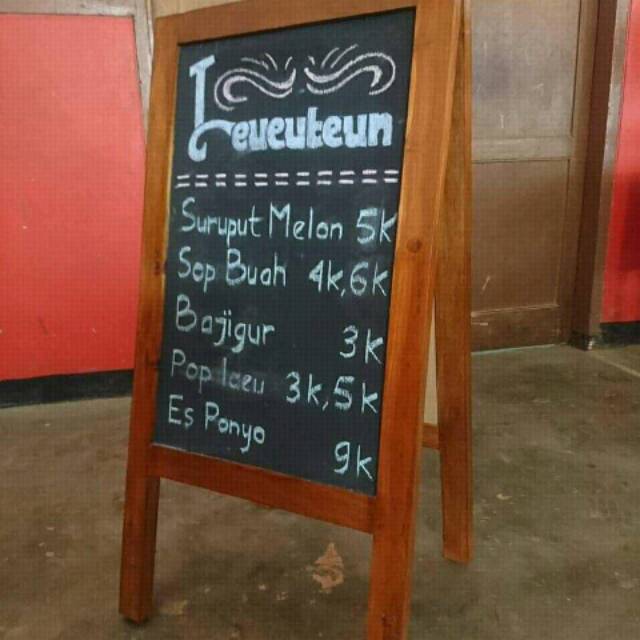 Leueuteun
Suruput Melon 5k
Sop Buah 4k,6k
Bajigur 3k
Pop Iceu 3k,5k
Es Ponyo 9k